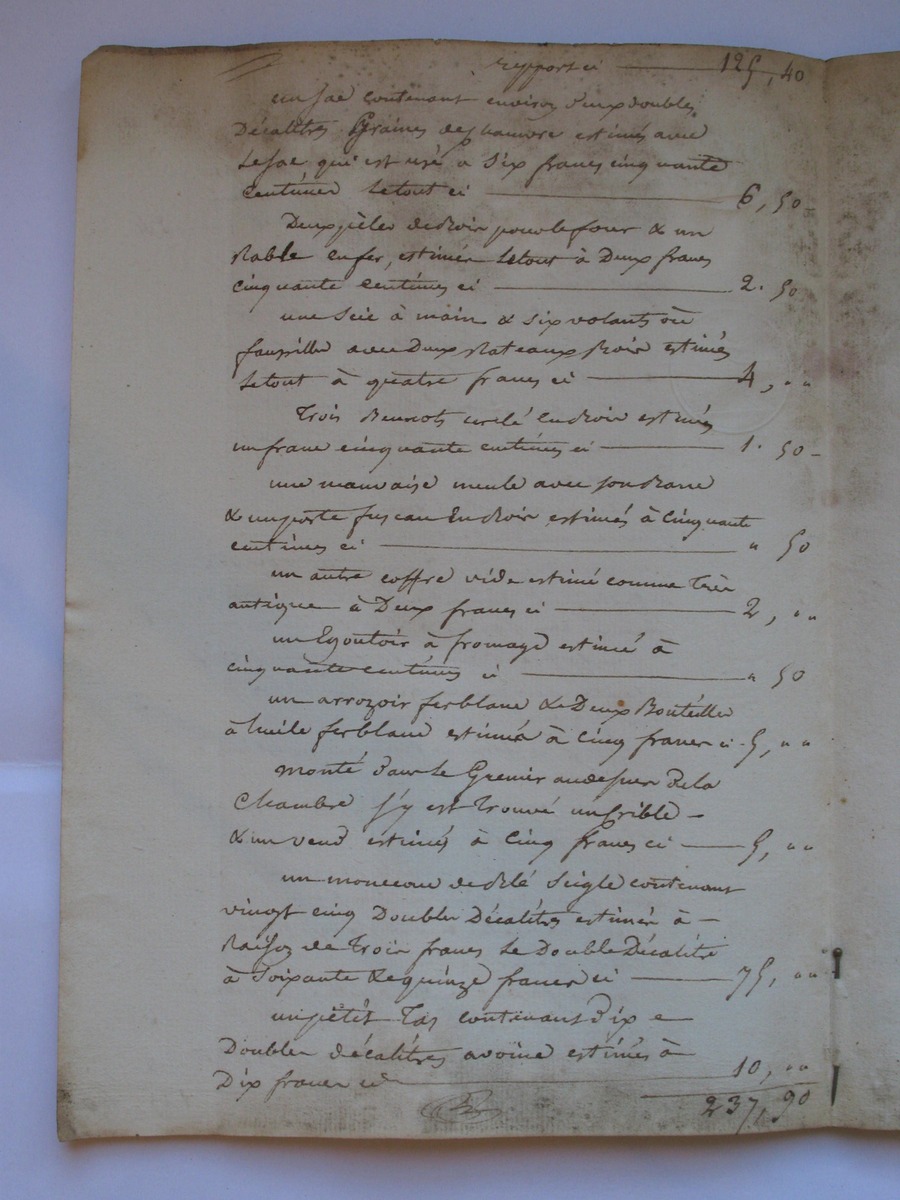 report ci 125, 40
un sac contenant environ deux doubles
Décalitres Graines de chanvre estimés avec
le sac qui est usé a six francs cinquante
centimes le tout ci 6, 50
Deux pèles de Bois pour le four & un
Rable en fer, estimés le tout à Deux francs
cinquante centimes ci 2. 50
une scie à main & six volants où
faussilles avec Deux Rateaux Bois estimés
le tout à quatre francs ci 4, ""
Trois Bennots cerclé en Bois estimés
un franc cinquante centimes ci 1. 50
une mauvaise meule avec son
& un porte fuseau en Bois estimés à cinquante
centimes ci " 50
un autre coffre vide estimé comme très
antique à Deux francs ci 2, ""
un Egoutoir à fromage estimé à
cinquante centimes ci " 50
un arrozoir ferblanc & Deux Bouteilles
à huile ferblanc estimés à Cinq francs ci 5, ""
monté dans le Grenier au dessus de la
Chambre s'y est trouvé un crible
& un vend estimés à Cinq francs ci 5, ""
un monceau de Blé Seigle contenant
vingt cinq Doubles Décalitres estimés à
Raison de Trois francs le Double Décalitre
à soixante & quinze francs ci 75, ""
un petit Tas contenant Dix
Doubles décalitres avoine estimés à
Dix francs ci 10, ""
237, 90